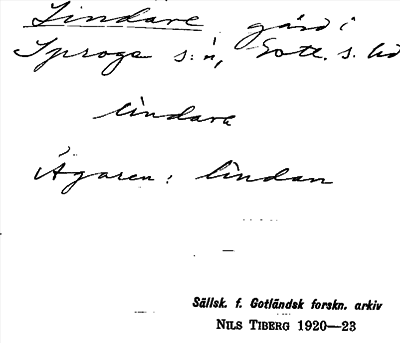 Lindare gård i
Sproge s:n, Gotl. s. hd
lindara
Ägaren: lindan
Sällsk. f. Gotländsk forskn. arkiv
NILS TIBERG 1920—23